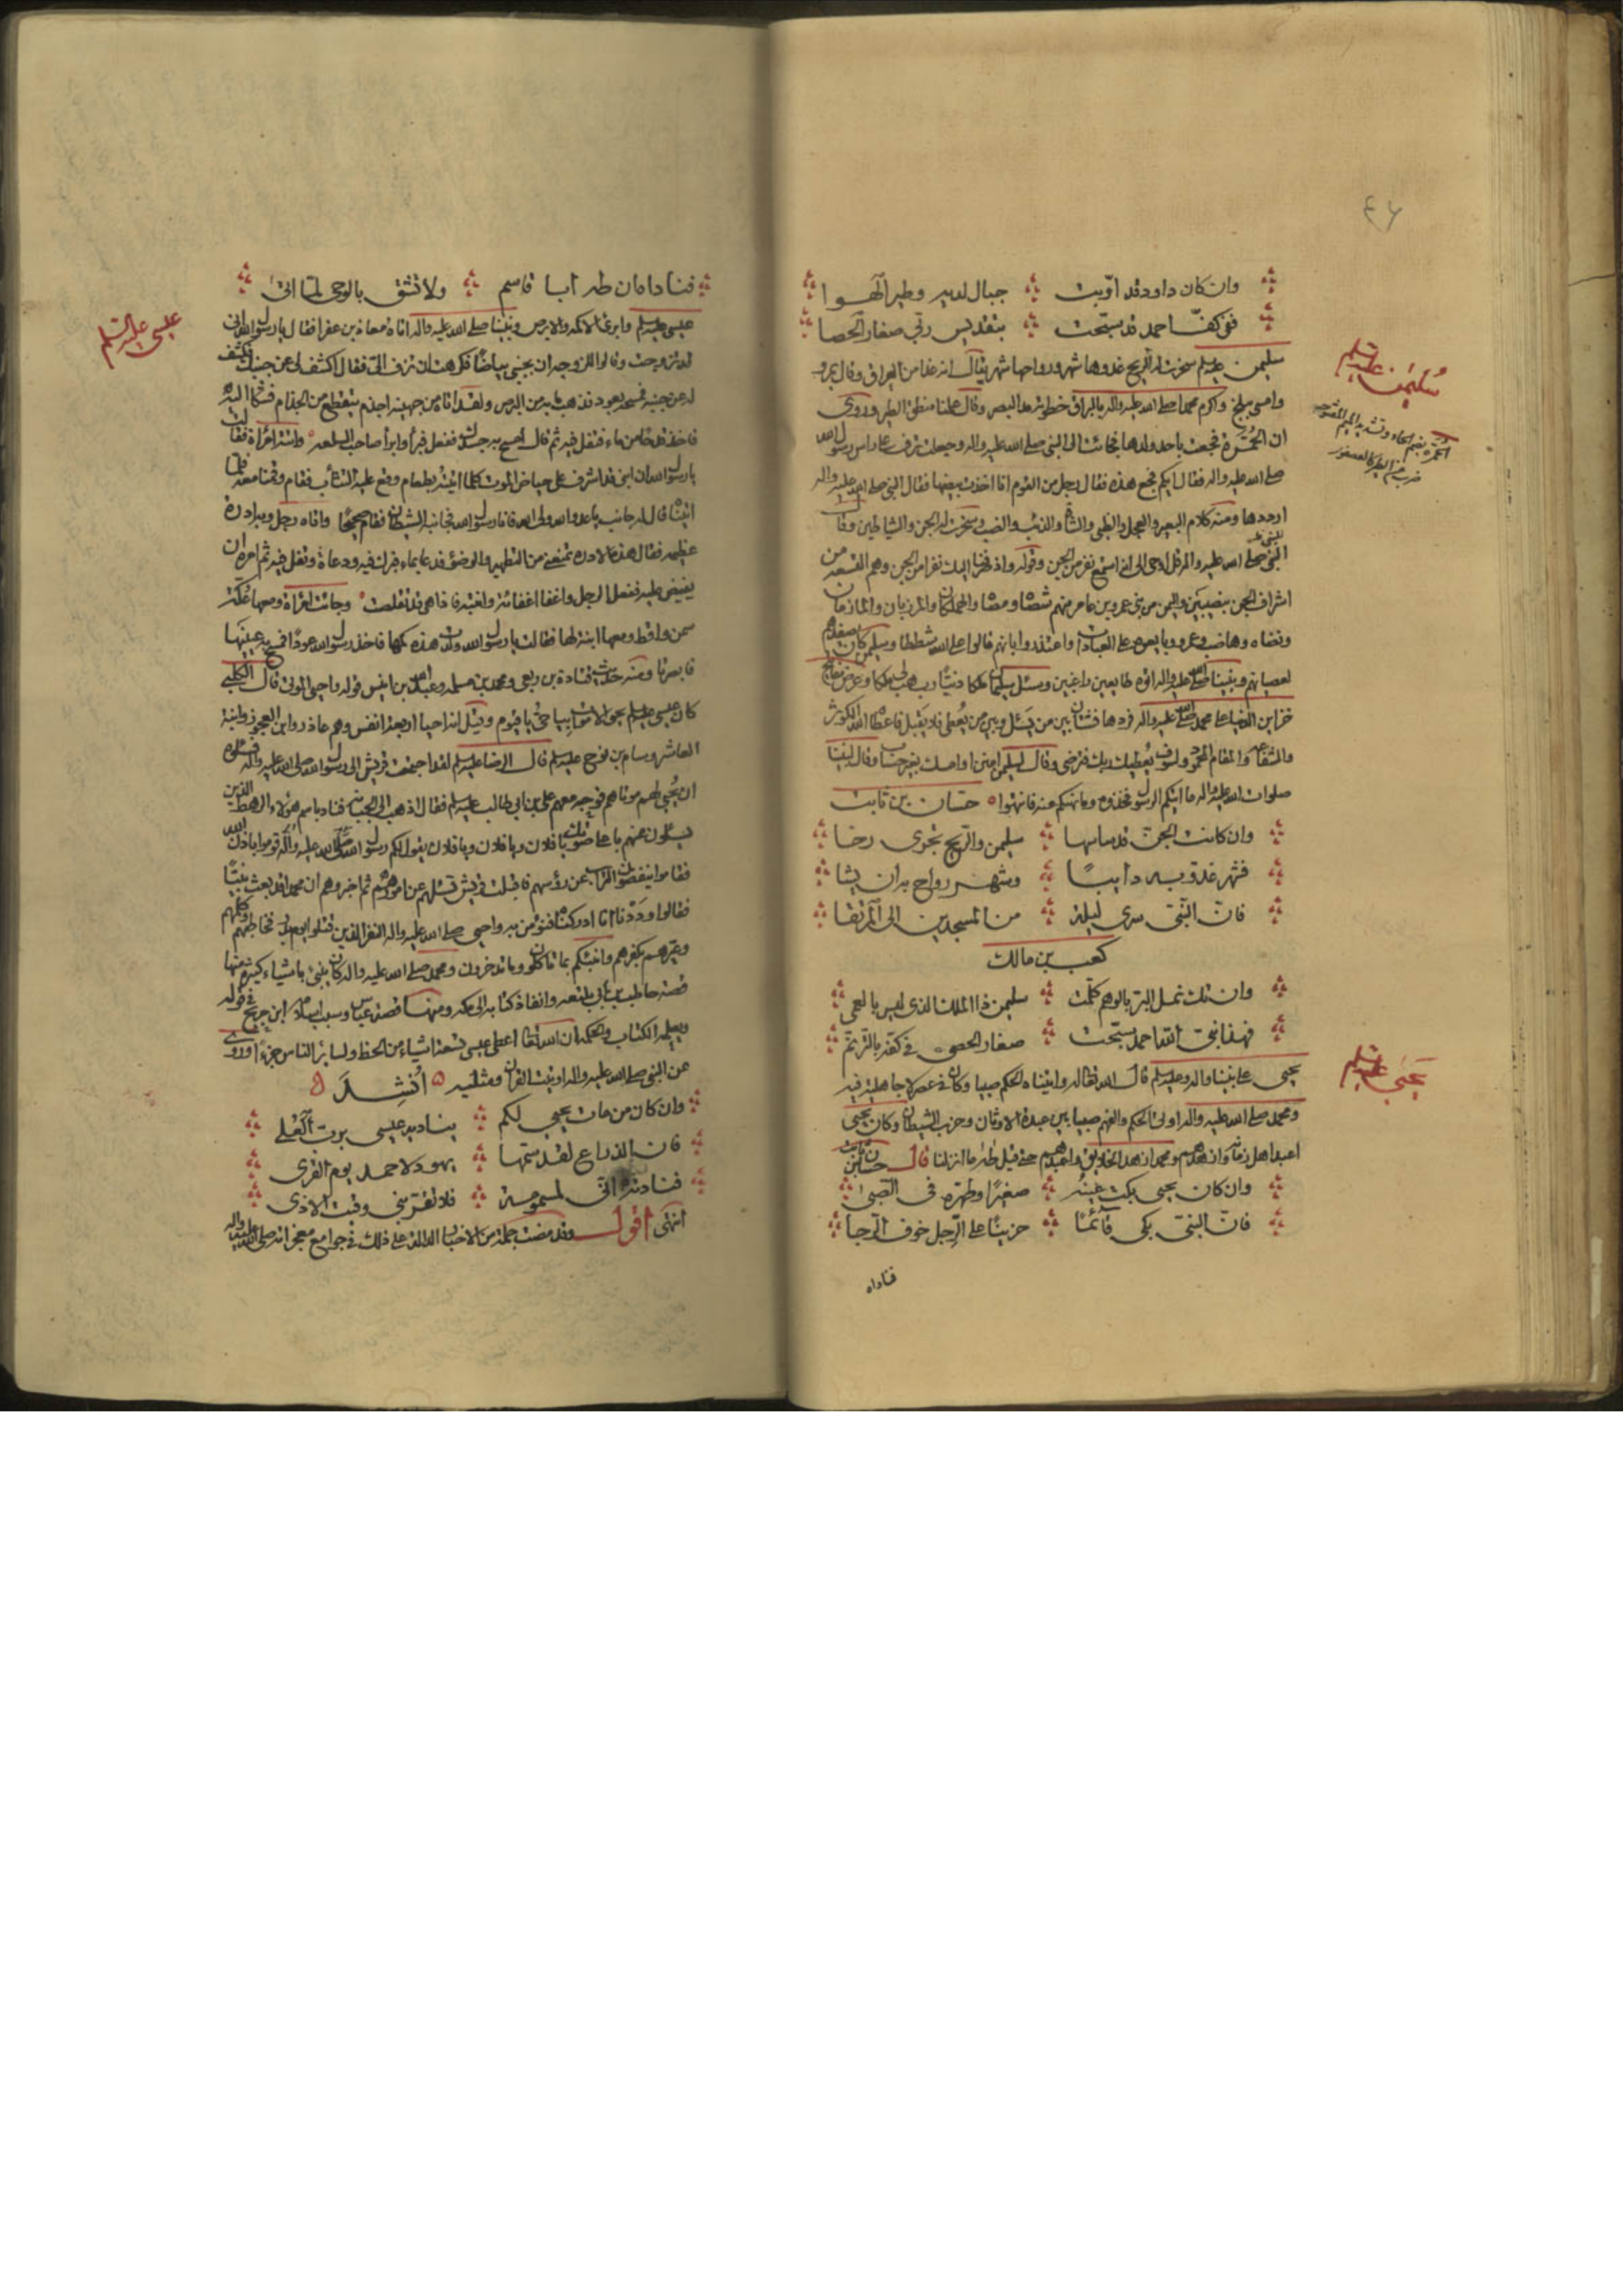 ٤٦
وان كان داود قد اوّبت جبال لديه وطير الهوا
ففى كفّ احمد قد سبّحت بتقديس ربّى صغار الحصا
سليمن عليه السلم
سليمن عليه السلم سخرت له الريح غدوها شهر ورواحها شهر يقال انه غدا من العراق وقال بمرو
وامسى ببلخ واكرم محمدا صلى الله عليه واله بالبراق خطوته مد البصر وقال علمنا منطق الطير وروى
الحمّرة بضم الحاء وتشديد الميم المفتوحة
ضرب من الطير كالعصفور
ان الحمّرة فجعت باحد ولدها فجائت الى النبى صلى الله عليه واله وجعلت ترف على راس رسول الله
صلى الله عليه واله فقال ايكم فجع هذه فقال رجل من القوم انا اخذت بيضها فقال النبى صلى الله عليه واله
ارددها ومنه كلام البعير والعجل والظبى والشاة والذئب والضب وسخرت له الجن والشياطين وقال
للنبى صلى الله عليه واله قل اوحى الى انه استمع نفر من الجن وقوله واذ صرفنا اليك نفرا من الجن وهم التسعة من
اشراف الجن بنصيبين واليمن من بنى عمرو بن عامر منهم شصاه ومصاه والهملكان والمرزبان والمازمان
ونضاه وهاضب وعمرو وبايعوه على العبادات واعتذروا بانهم قالوا على الله شططا وسليمن كان يصفدهم
لعصيانهم ونبينا صلى الله عليه واله اتوه طايعين راغبين وسئل سليمان ملكا دنيّا رب هب لى ملكا وعرض مفاتيح
خزاين الدنيا على محمد صلى الله عليه واله فردها فشتان بين من يسئل وبين من يُعطى فلا يقبل فاعطاه الله الكوثر
والشفاعة والمقام المحمود ولسوف يُعطيك ربك فترضى وقال لسليمن امنن او امسك بغير حساب وقال لنبينا
صلوات الله عليه واله ما اتيكم الرسول فخذوه وما نهيكم عنه فانتهوا حسّان بن ثابت
وان كانت الجنّ قد ساسها سليمن والريح تجرى رخا
فشهر غدوّ به دايبًا وشهر رواح به ان يشا
فانّ النّبى سرى ليلة من المسجدين الى المرتقا
كعب بن مالك
وان تك نمل البر بالوهم كلّمت سليمن ذا الملك الذى ليس بالعمى
فهذا نبى الله احمد سبّحت صغار الحصى فى كفّه بالترنم
يحيى عليه السلم
يحيى على نبينا واله وعليه السلم قال الله تعالى له واتيناه الحكم صبيا وكان فى عصر لا جاهلية فيه
ومحمد صلى الله عليه واله اوتى الحكم والفهم صبيا بين عبدة الاوثان وحزب الشيطان وكان يحيى
اعبد اهل زمانه وازهدهم ومحمد ازهد الخلايق واعبدهم حتى قيل طه ما انزلنا قال حسّان بن ثابت
وان كان يحيى بكت عينه صغيرًا وطهّره فى الصبى
فانّ النبىّ بكى قآئمًا حزينًا على الرّجل خوف الرّجا
فناداه
فناداه ان طه ابا قاسم ولا تشق بالوحى لمّا اتى
عيسى عليه السلم
عيسى عليه السلم وابرئ الاكمه والابرص ونبينا صلى الله عليه واله اتاه معاذ بن عفرا فقال يا رسول الله انى
قد تزوجت وقالوا للزوجة ان بجنبى بياضا فكرهت ان تزف الىّ فقال اكشف لى عن جنبك فكشف
له عن جنبه فمسحه بعود فذهب ما به من البرص ولقد اتاه من جهينة اجذم يتقطع من الجذام فشكا اليه
فاخذ قدحا من ماء فتفل فيه ثم قال امسح به جسدك ففعل فبرأ وابرأ صاحب السلعة واتته امرأة فقالت
يا رسول الله ان ابنى قد اشرف على حياض الموت كلما اتيته بطعام وقع عليه التثاؤب فقام وقمنا معه فلما
اتيناه قال له جانب يا عدو الله ولى الله فانا رسول الله فجانبه الشيطان فقام صحيحًا واتاه رجل وبه ادرة
عظيمة فقال هذه الادرة تمنعنى من التطهير والوضوء فدعا بماء فبرك فيه ودعاه وتفل فيه ثم امره ان
يفيض عليه ففعل الرجل واغفا اغفائة وانتبه فاذا هى قد تقلصت وجائت امرأة ومعها عُكّة
سمن واقط ومعها ابنة لها فقالت يا رسول الله ولدت هذه كمها فاخذ رسول الله عودًا فمسح به عينيها
فابصرتا ومنه حديث قتادة بن ربعى ومحمد بن مسلمة وعبد الله بن انيس قوله واحيى الموتى قال الكلبى
كان عيسى عليه السلم يحيى الاموات بيا حىّ يا قيوم وقيل انه احيا اربعة انفس وهم عاذر وابن العجوز وابنة
العاشر وسام بن نوح عليه السلم قال الرضا عليه السلم لقد اجتمعت قريش الى رسول الله صلى الله عليه واله فسئلوه
ان يُحيى لهم موتاهم فوجه معهم على بن ابى طالب عليه السلم فقال اذهب الى الجبانة فناد باسم هؤلاء الرهط الذين
يسئلون عنهم باعلى صوتك يا فلان ويا فلان ويا فلان يقول لكم رسول الله صلى الله عليه واله قوموا باذن الله
فقاموا ينفضون التراب عن رؤسهم فاقبلت قريش تسئلهم عن امورهم ثم اخبروهم ان محمدا قد بعث نبيًّا
فقالوا ودّدنا انا ادركناه فنؤمن به واحيى صلى الله عليه واله النفر الذين قتلوا يوم بدر فخاطبهم وكلمهم
وعيّرهم بكفرهم وانبئكم بما تاكلون وما تدخرون ومحمد صلى الله عليه واله كان ينبئ باشياء كثيرة منها
قصة حاطب بن ابى بلتعة وانفاذ كتابه الى مكة ومنها قصة عباس وسبب اسلامه ابن جريح فى قوله
ويعلمه الكتاب والحكمة ان الله تعالى اعطى عيسى تسعة اشياء من الحظ ولسائر الناس جزءًا وروى
عن النبى صلى الله عليه واله اوتيت القران ومثليه اُنْشِدَ
وان كان من مات يحيى لكم يناديه عيسى بربّ العُلى
فان الذراع لقد سمّها يهود لاحمد يوم القرى
فنادته انى لمسمومة فلا تقربنى وقيت الاذى
انتهى اقول وقد مضت جملة من الاخبار الدالة على ذلك فى جوامع معجزاته صلى الله عليه واله